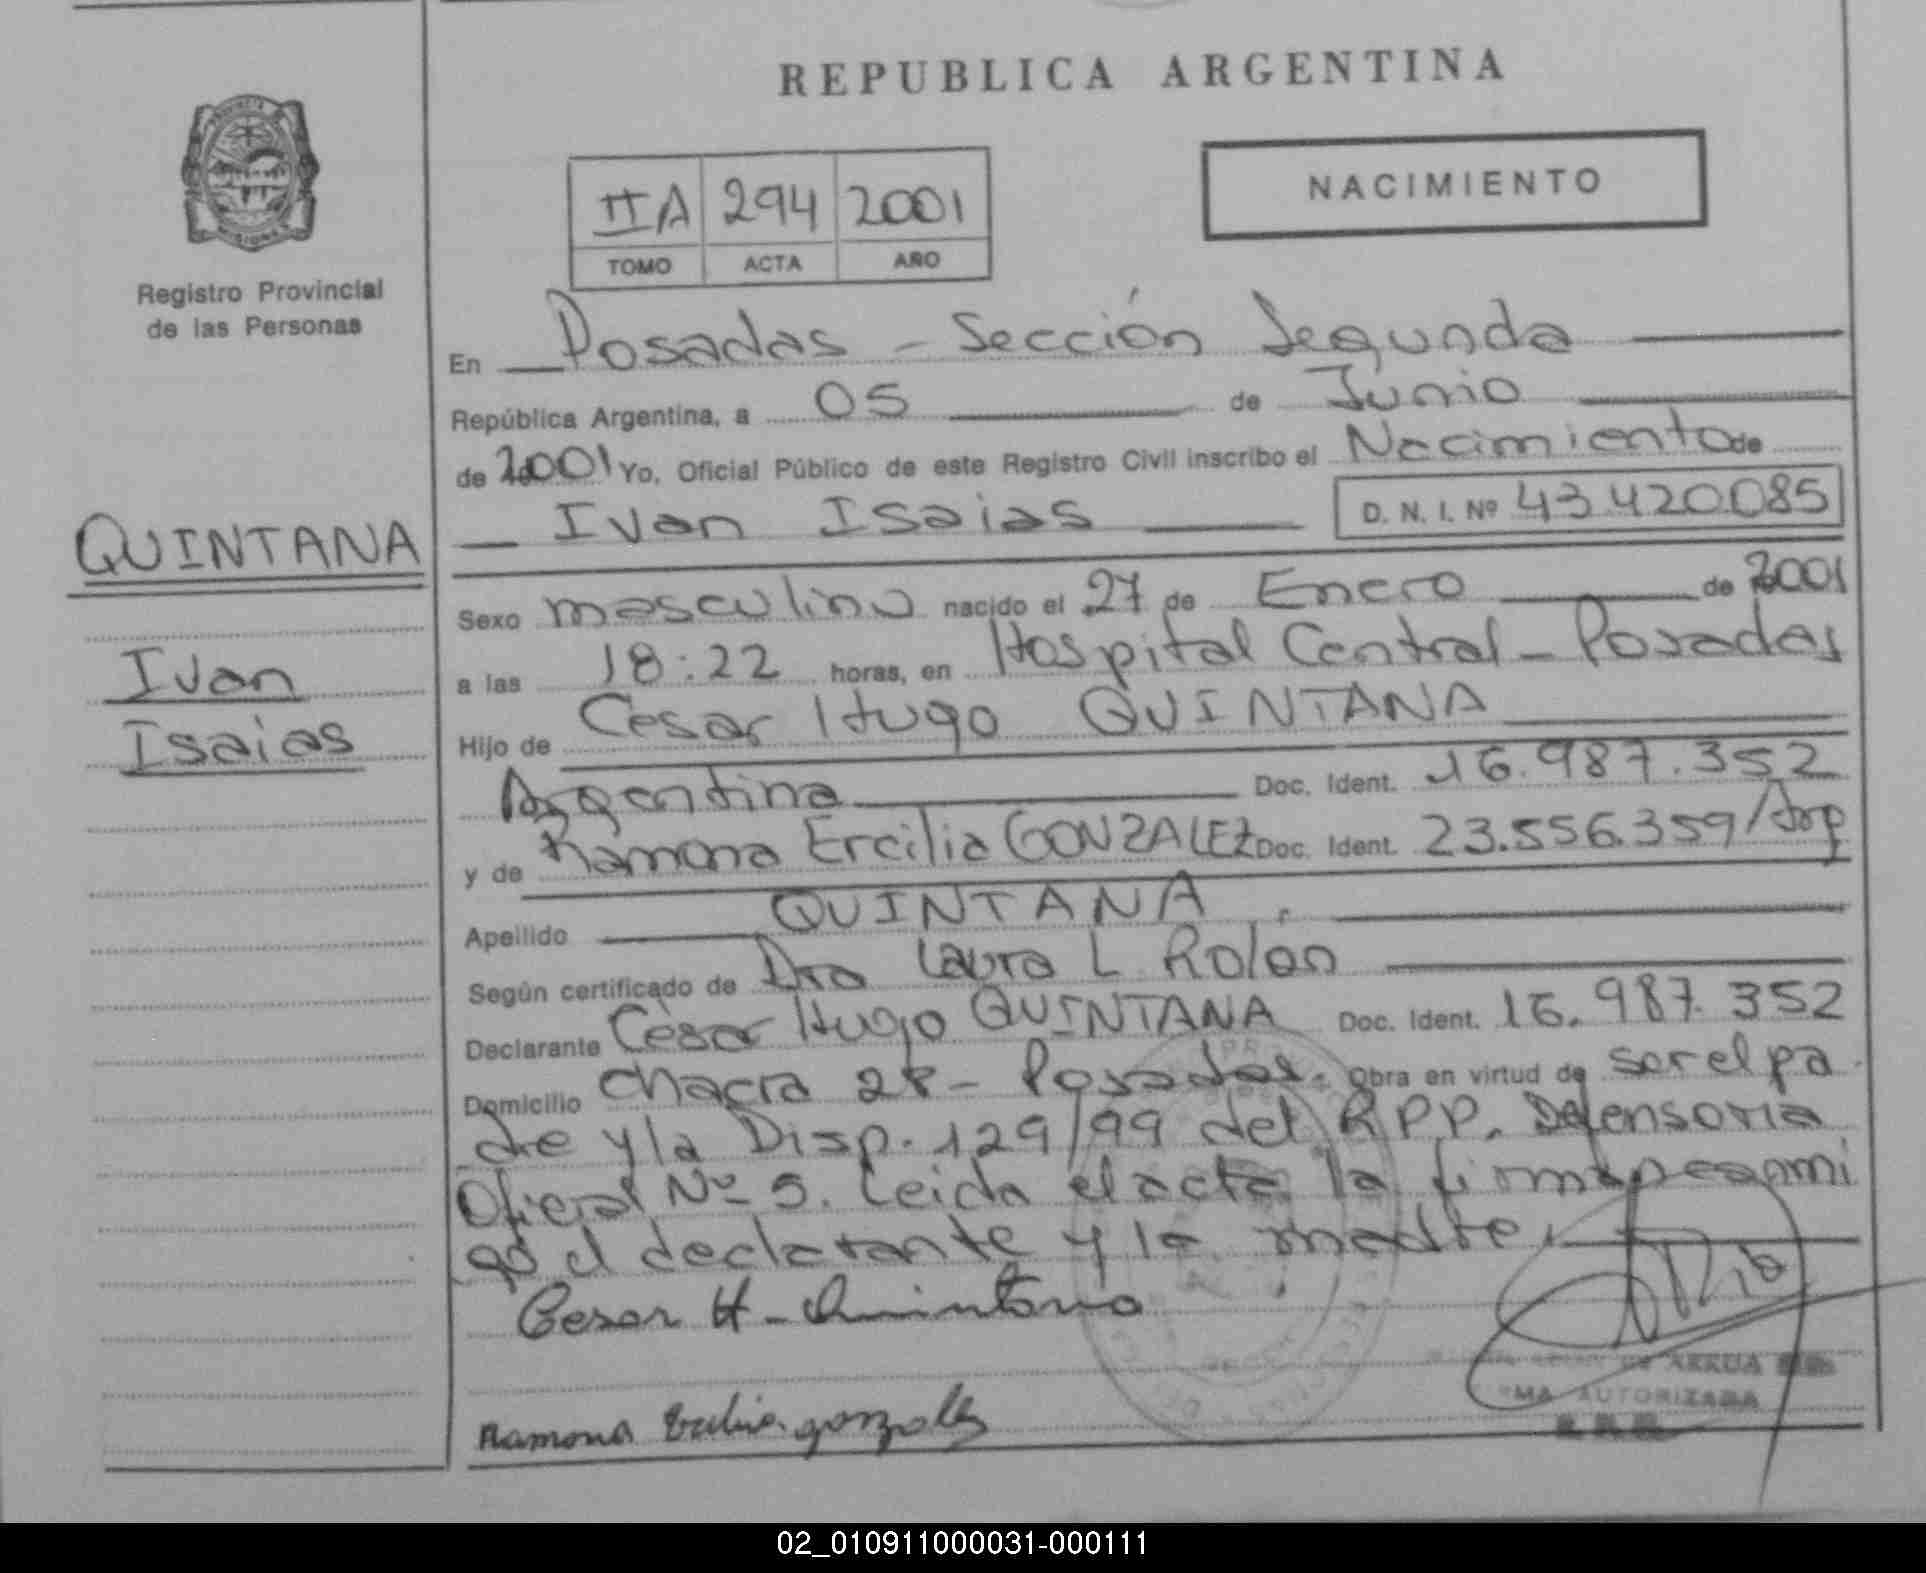 REPUBLICA ARGENTINA
NACIMIENTO
IIA 294 2001
TOMO ACTA AÑO
PROVINCIA
MISIONES
Registro Provincial
de las Personas
QUINTANA
Ivan
Isaias
En Posadas - Sección Segunda
República Argentina, a 05 de Junio
de 2001 Yo, Oficial Público de este Registro Civil inscribo el Nacimiento de
Ivan Isaias D. N. I. Nº 43.420.085
Sexo masculino nacido el 27 de Enero de 2001
a las 18:22 horas, en Hospital Central - Posadas
Hijo de Cesar Hugo QUINTANA
Argentina Doc. Ident. 16.987.352
y de Ramona Ercilia GONZALEZ Doc. Ident. 23.556.359/Arg
Apellido QUINTANA.
Según certificado de Dra Laura L Rolón
Declarante César Hugo QUINTANA Doc. Ident. 16.987.352
Domicilio Chacra 28 - Posadas. Obra en virtud de ser el pa
dre y la Disp. 129/99 del RPP. Defensoria
Oficial Nº 5. Leida el acta la firman conmi
go el declarante y la madre.
Cesar H - Quintana
Ramona Ercilia gonzalez
ARRUA
FIRMA AUTORIZADA
02_010911000031-000111